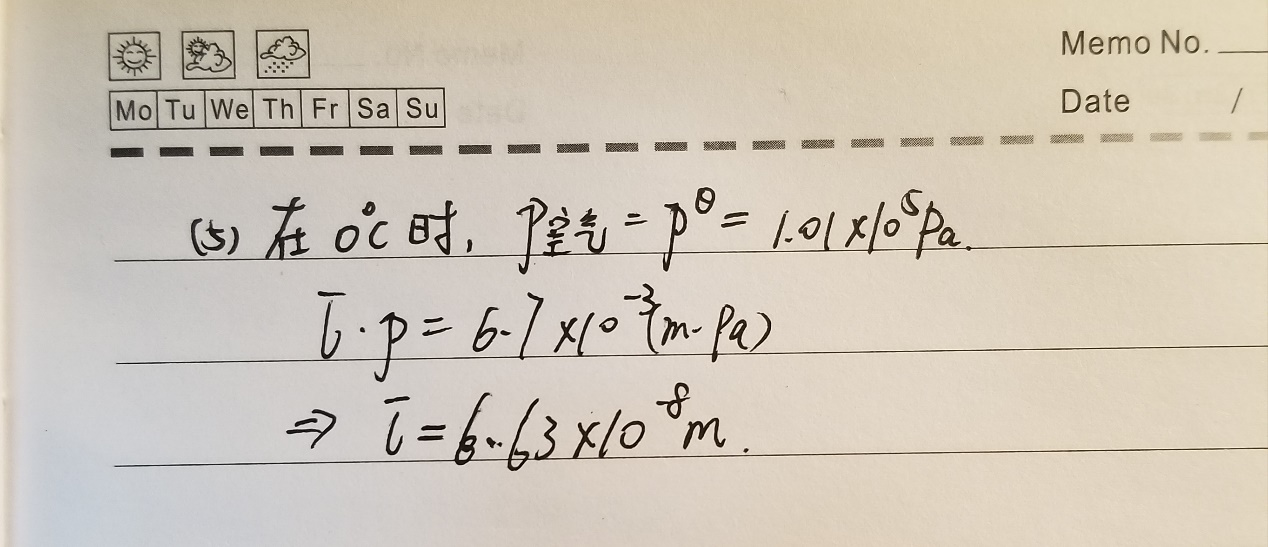 Memo No.
Mo Tu We Th Fr Sa Su
Date /
(5) 在 0°C 时, P空气 = p^θ = 1.01×10^5 Pa.
l̄·p = 6.7×10^-3 (m·Pa)
⇒ l̄ = 6.63×10^-8 m.